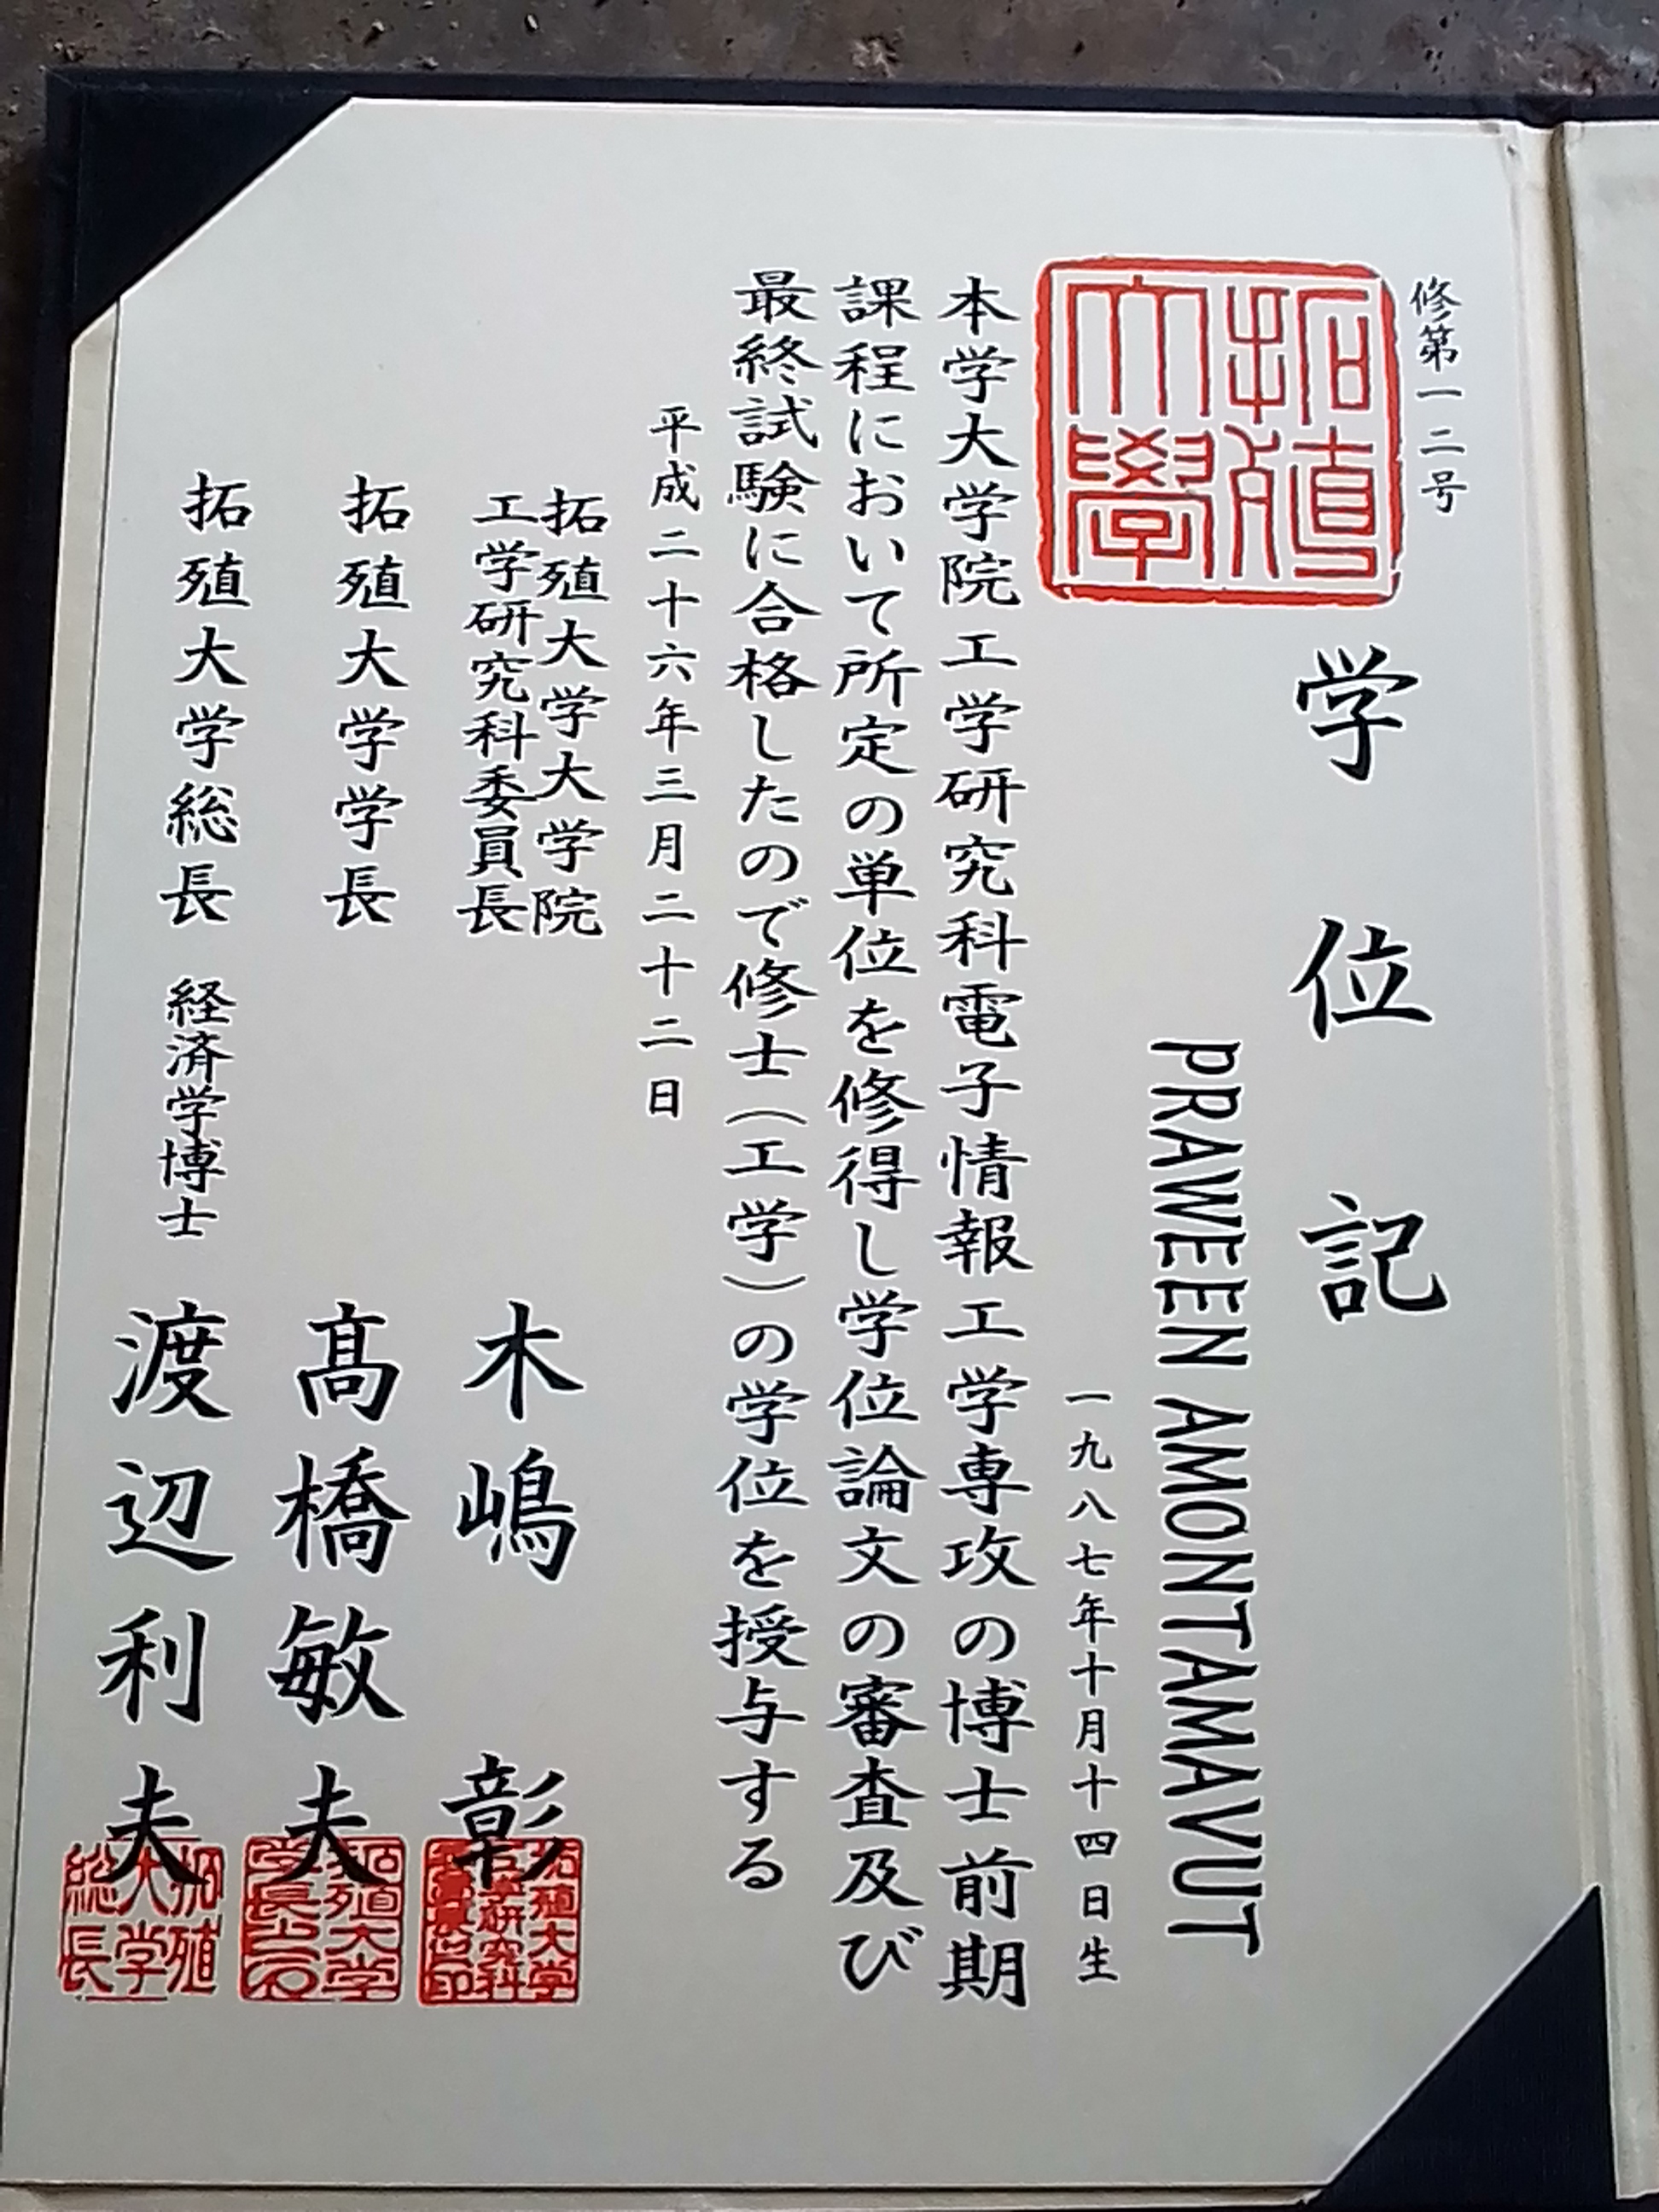 修第一二号
拓殖大學
学位記
PRAWEEN AMONTAMAVUT
一九八七年十月十四日生
本学大学院工学研究科電子情報工学専攻の博士前期
課程において所定の単位を修得し学位論文の審査及び
最終試験に合格したので修士（工学）の学位を授与する
平成二十六年三月二十二日
拓殖大学大学院
工学研究科委員長
木嶋彰
拓殖大学学長
髙橋敏夫
拓殖大学学長之印
拓殖大学総長 経済学博士
渡辺利夫
拓殖大学総長